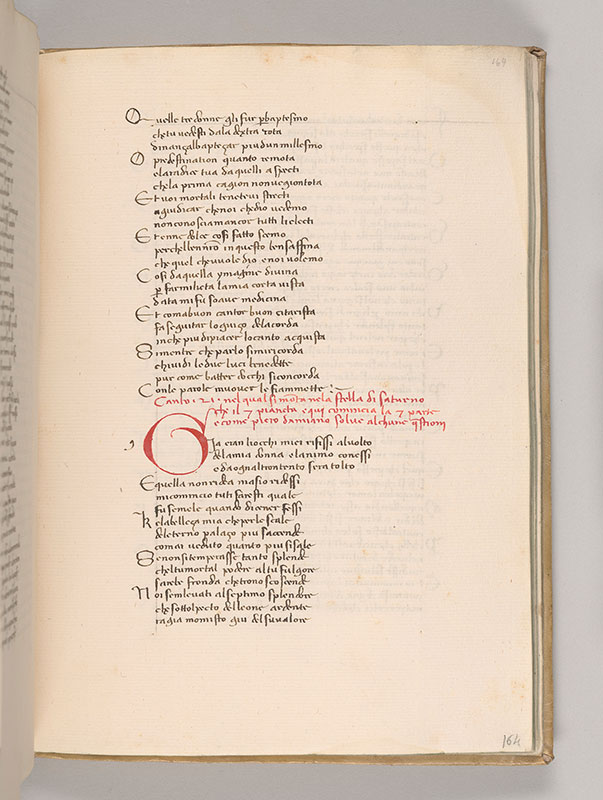 169
Quelle tre donne gli fur p baptesmo
che tu vedesti dala dextra rota
dinançalbapteçar piu dun millesmo
O predestination quanto remota
e laradice tua daquelli aspecti
chela prima cagion non vegion tota
Et voi mortali tenetevi strecti
agiudicar che noi che dio vedemo
non conosciam ancor tutti li electi
Et enne dolce cosi fatto scemo
perchel ben nro in questo ben saffina
che quel che vuole dio e noi volemo
Cosi da quella ymagine divina
p farmi lieta la mia corta vista
data mi fu soave medicina
Et coma buon cantor buon citarista
fa seguitar lo guiço dela corda
in che piu di piacer lo canto acquista
Si mentre che parlo si mi ricorda
chi vidi le due luci benedette
pur come batter docchi si concorda
Con le parole muover le fiammette
Canto . 21 . nel qual si mota nela stella di saturno
che il 7 pianeta e qui comincia la 7 parte
e come piero damiano solve alchune qstioni
Gia eran li occhi miei rifissi al volto
dela mia donna e lanimo con essi
e da ogna ltro ntento sera tolto
E quella non ridea ma sio ridessi
mi comincio tu ti faresti quale
fu semele quando di cener fessi
K e la belleça mia che per le scale
deleterno palaço piu saccende
comai veduto quanto piu si sale
Se non si temperasse tanto splende
chel tu mortal podere al tu fulgore
sarebe fronda che trono scoscende
Noi sem levati al septimo splendore
che sotto l pecto del leone ardente
ragia mo misto giu del su valore
164